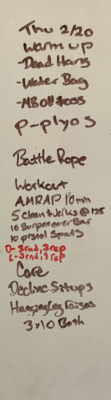 Thu 2/20
Warm up
- Dead Hangs
- Water Bag
- MB
P-plyos
Battle Rope
Workout
AMRAP 10 min
5 Clean & Jerks @ 135
10 Burpee over Bar
10 pistol Squats
Core
Decline Situps
Hanging leg Raises
3x10 Both